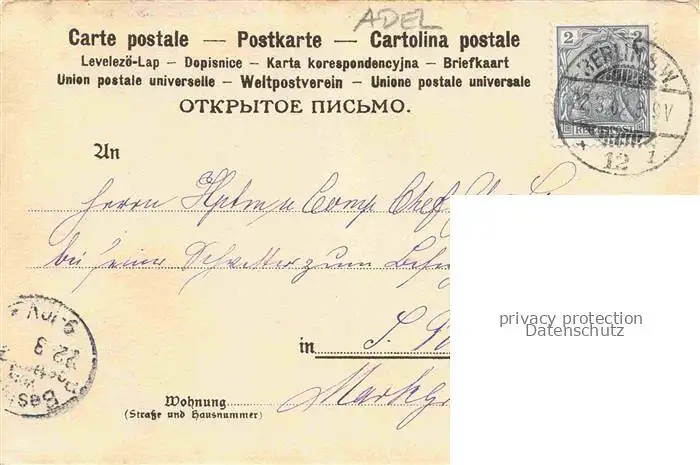 ADEL
Carte postale — Postkarte — Cartolina postale
Levelező-Lap — Dopisnice — Karta korespondencyjna — Briefkaart
Union postale universelle — Weltpostverein — Unione postale universale
ОТКРЫТОЕ ПИСЬМО.
2 2
REICHSPOST
BERLIN S.W.
12
An
Herrn Hptm u Comp Chef
bei seiner Schwester zum
privacy protection
Datenschutz
in
Wohnung
(Straße und Hausnummer)
9-10V
22 3